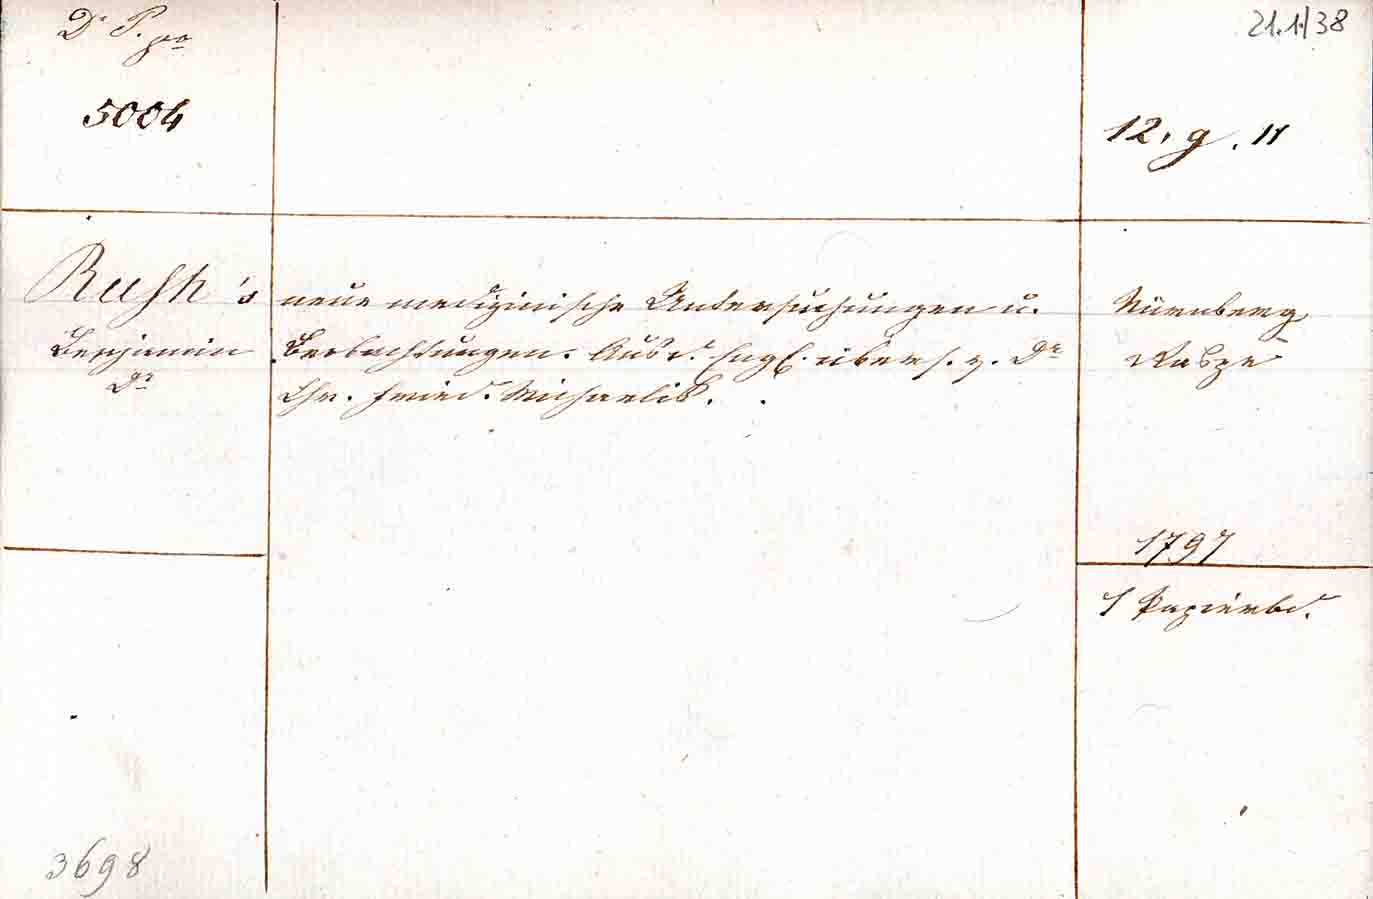 Dr P.
21.1./38
5004
12. g. 11
Rush's
Benjamin
Dr
neue medizinische Untersuchungen u.
Beobachtungen. Aus d. Engl. übers. v. Dr
Chr. Fried. Michaelis.
Nürnberg
Raspe
1797
1 Papierbd.
3698